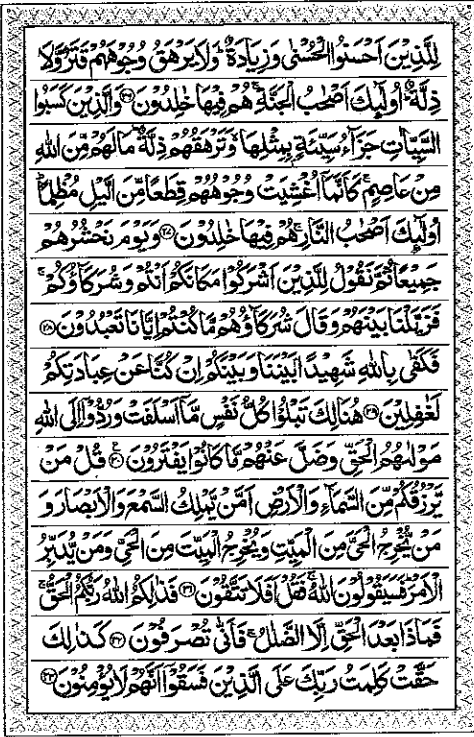 لِلَّذِيْنَ اَحْسَنُوا الْحُسْنٰى وَزِيَادَةٌ ؕ وَلَا يَرْهَقُ وُجُوْهَهُمْ قَتَرٌ وَّلَا
ذِلَّةٌ ؕ اُولٰٓئِكَ اَصْحٰبُ الْجَنَّةِ ۚ هُمْ فِيْهَا خٰلِدُوْنَ ۝۲۶ وَالَّذِيْنَ كَسَبُوا
السَّيِّاٰتِ جَزَآءُ سَيِّئَةٍۭ بِمِثْلِهَا ۙ وَتَرْهَقُهُمْ ذِلَّةٌ ؕ مَا لَهُمْ مِّنَ اللّٰهِ
مِنْ عَاصِمٍ ۚ كَاَنَّمَاۤ اُغْشِيَتْ وُجُوْهُهُمْ قِطَعًا مِّنَ الَّيْلِ مُظْلِمًا ؕ
اُولٰٓئِكَ اَصْحٰبُ النَّارِ ۚ هُمْ فِيْهَا خٰلِدُوْنَ ۝۲۷ وَيَوْمَ نَحْشُرُهُمْ
جَمِيْعًا ثُمَّ نَقُوْلُ لِلَّذِيْنَ اَشْرَكُوْا مَكَانَكُمْ اَنْتُمْ وَشُرَكَآؤُكُمْ ۚ
فَزَيَّلْنَا بَيْنَهُمْ وَقَالَ شُرَكَآؤُهُمْ مَّا كُنْتُمْ اِيَّانَا تَعْبُدُوْنَ ۝۲۸
فَكَفٰى بِاللّٰهِ شَهِيْدًۢا بَيْنَنَا وَبَيْنَكُمْ اِنْ كُنَّا عَنْ عِبَادَتِكُمْ
لَغٰفِلِيْنَ ۝۲۹ هُنَالِكَ تَبْلُوْا كُلُّ نَفْسٍ مَّاۤ اَسْلَفَتْ وَرُدُّوْۤا اِلَى اللّٰهِ
مَوْلٰىهُمُ الْحَقِّ وَضَلَّ عَنْهُمْ مَّا كَانُوْا يَفْتَرُوْنَ ۝۳۰ قُلْ مَنْ
يَّرْزُقُكُمْ مِّنَ السَّمَآءِ وَالْاَرْضِ اَمَّنْ يَّمْلِكُ السَّمْعَ وَالْاَبْصَارَ وَ
مَنْ يُّخْرِجُ الْحَيَّ مِنَ الْمَيِّتِ وَيُخْرِجُ الْمَيِّتَ مِنَ الْحَيِّ وَمَنْ يُّدَبِّرُ
الْاَمْرَ ؕ فَسَيَقُوْلُوْنَ اللّٰهُ ۚ فَقُلْ اَفَلَا تَتَّقُوْنَ ۝۳۱ فَذٰلِكُمُ اللّٰهُ رَبُّكُمُ الْحَقُّ ۚ
فَمَاذَا بَعْدَ الْحَقِّ اِلَّا الضَّلٰلُ ۖۚ فَاَنّٰى تُصْرَفُوْنَ ۝۳۲ كَذٰلِكَ
حَقَّتْ كَلِمَتُ رَبِّكَ عَلَى الَّذِيْنَ فَسَقُوْۤا اَنَّهُمْ لَا يُؤْمِنُوْنَ ۝۳۳